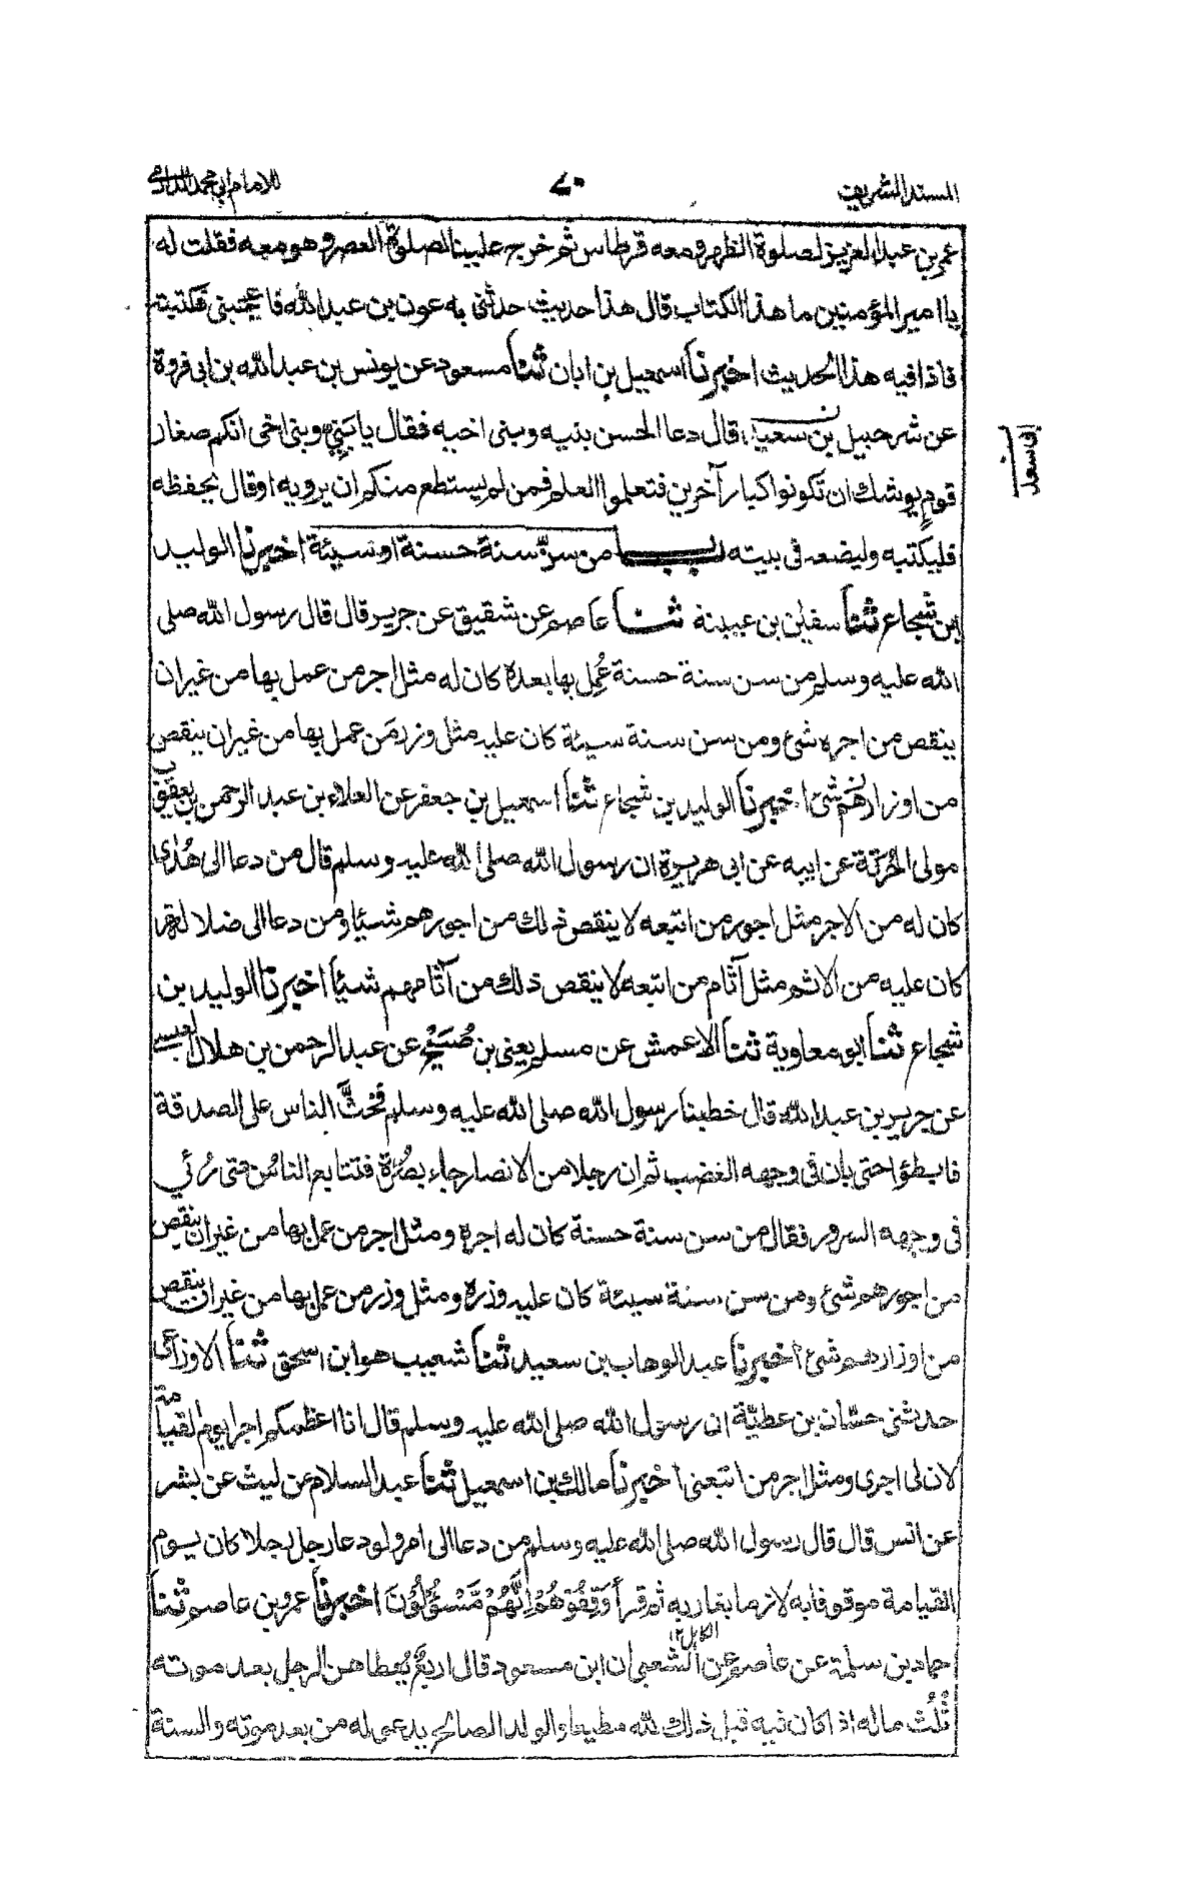 المسند الشريف ٧٠ للامام ابي محمد الدارمي
عمر بن عبد العزيز لصلوة الظهر ومعه قرطاس ثم خرج علينا لصلوة العصر وهو معه فقلت له
يا امير المؤمنين ما هذا الكتاب قال هذا حديث حدثني به عون بن عبد الله فاعجبني فكتبته
فاذا فيه هذا الحديث اخبرنا اسمعيل بن ابان ثنا مسعود عن يونس بن عبد الله بن ابي فروة
عن شرحبيل بن سعيد قال دعا الحسن بنيه وبني اخيه فقال يا بَنِيَّ وبني اخي انكم صغار
قومٍ يوشك ان تكونوا كبار آخرين فتعلموا العلم فمن لم يستطع منكم ان يرويه او قال يحفظه
فليكتبه وليضعه في بيته باب من سنَّ سنة حسنة او سيئة اخبرنا الوليد
بن شجاع ثنا سفين بن عيينة ثنا عاصم عن شقيق عن جرير قال قال رسول الله صلى
الله عليه وسلم من سن سنة حسنة عُمِل بها بعده كان له مثل اجر من عمل بها من غير ان
ينقص من اجره شئ ومن سن سنة سيئة كان عليه مثل وزر مَن عمل بها من غير ان ينقص
من اوزارهم شئ اخبرنا الوليد بن شجاع ثنا اسمعيل بن جعفر عن العلاء بن عبد الرحمن بن يعقوب
مولى الحُرَقَة عن ابيه عن ابي هريرة ان رسول الله صلى الله عليه وسلم قال من دعا الى هُدًى
كان له من الاجر مثل اجور من اتبعه لا ينقص ذلك من اجورهم شيئا ومن دعا الى ضلالة
كان عليه من الاثم مثل آثام من اتبعه لا ينقص ذلك من آثامهم شيئا اخبرنا الوليد بن
شجاع ثنا ابو معاوية ثنا الاعمش عن مسلم يعني بن صُبَيْح عن عبد الرحمن بن هلال العبسي
عن جرير بن عبد الله قال خطبنا رسول الله صلى الله عليه وسلم فحَثَّ الناس على الصدقة
فابطؤا حتى بان في وجهه الغضب ثم ان رجلا من الانصار جاء بصُرَّة فتتابع الناسُ حتى رُئي
في وجهه السرور فقال من سن سنة حسنة كان له اجره ومثل اجر من عمل بها من غير ان ينقص
من اجورهم شئ ومن سن سنة سيئة كان عليه وزره ومثل وزر من عمل بها من غير ان ينقص
من اوزارهم شئ اخبرنا عبد الوهاب بن سعيد ثنا شعيب هو ابن اسحق ثنا الاوزاعي
حدثني حسّان بن عطيّة ان رسول الله صلى الله عليه وسلم قال انا اعظمكم اجرا يوم القيامة
لان لي اجري ومثل اجر من اتبعني اخبرنا مالك بن اسمعيل ثنا عبد السلام عن ليث عن بشر
عن انس قال قال رسول الله صلى الله عليه وسلم من دعا الى امر ولو دعا رجل رجلا كان يوم
القيامة موقوفا به لازما بغاربه ثم قرأ وَقِفُوْهُمْ اِنَّهُمْ مَّسْـُٔوْلُوْنَ اخبرنا عمرو بن عاصم ثنا
حماد بن سلمة عن عاصم عن الشعبي ان ابن مسعود قال اربعٌ يُعطاهن الرجل بعد موته
ثُلُث ماله اذا كان فيه قبل ذلك لله مطيعا والولد الصالح يدعو له من بعد موته والسنة